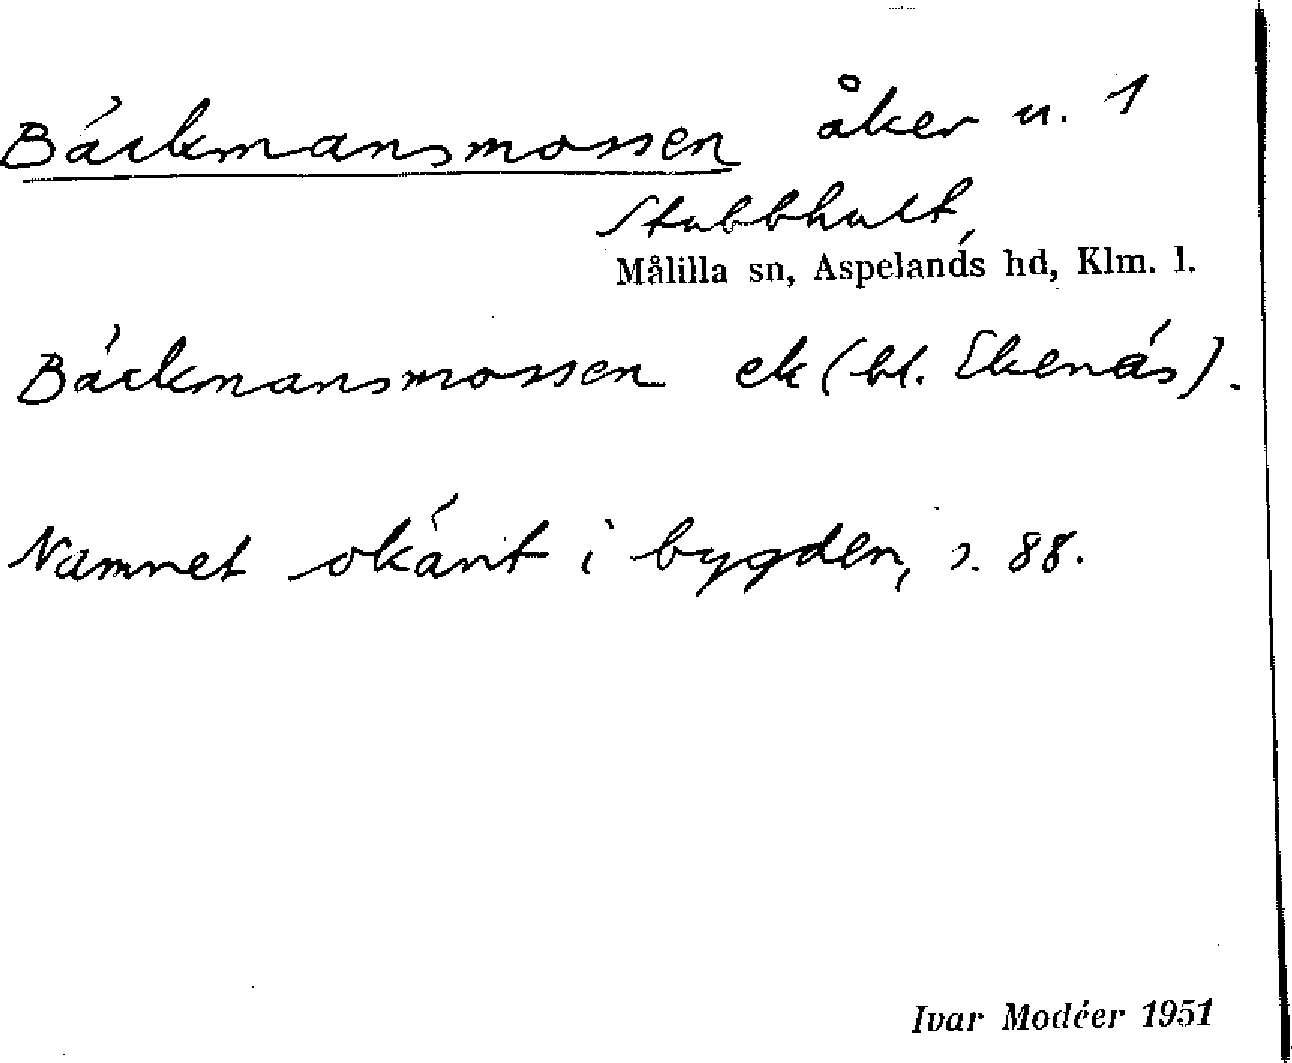 Bäckmansmossen åker u. 1
Stubbhult,
Målilla sn, Aspelands hd, Klm. l.
Bäckmansmossen ek (bl. Ekenäs).
Namnet okänt i bygden, s. 88.
Ivar Modéer 1951